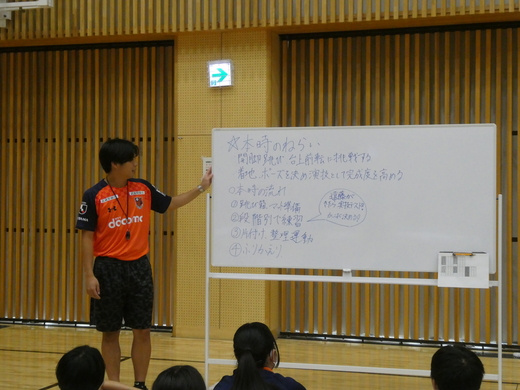 ☆本時のねらい
開脚跳び 台上前転に挑戦する
着地 ポーズを決め演技として完成度を高める
○本時の流れ
①跳び箱・マット準備
②段階別で練習
③片付け、整理運動
④ふりかえり
docomo